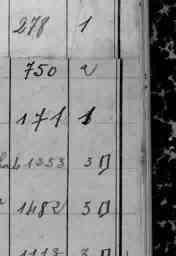 278 1
750 2
171 1
1353 3
1482 3